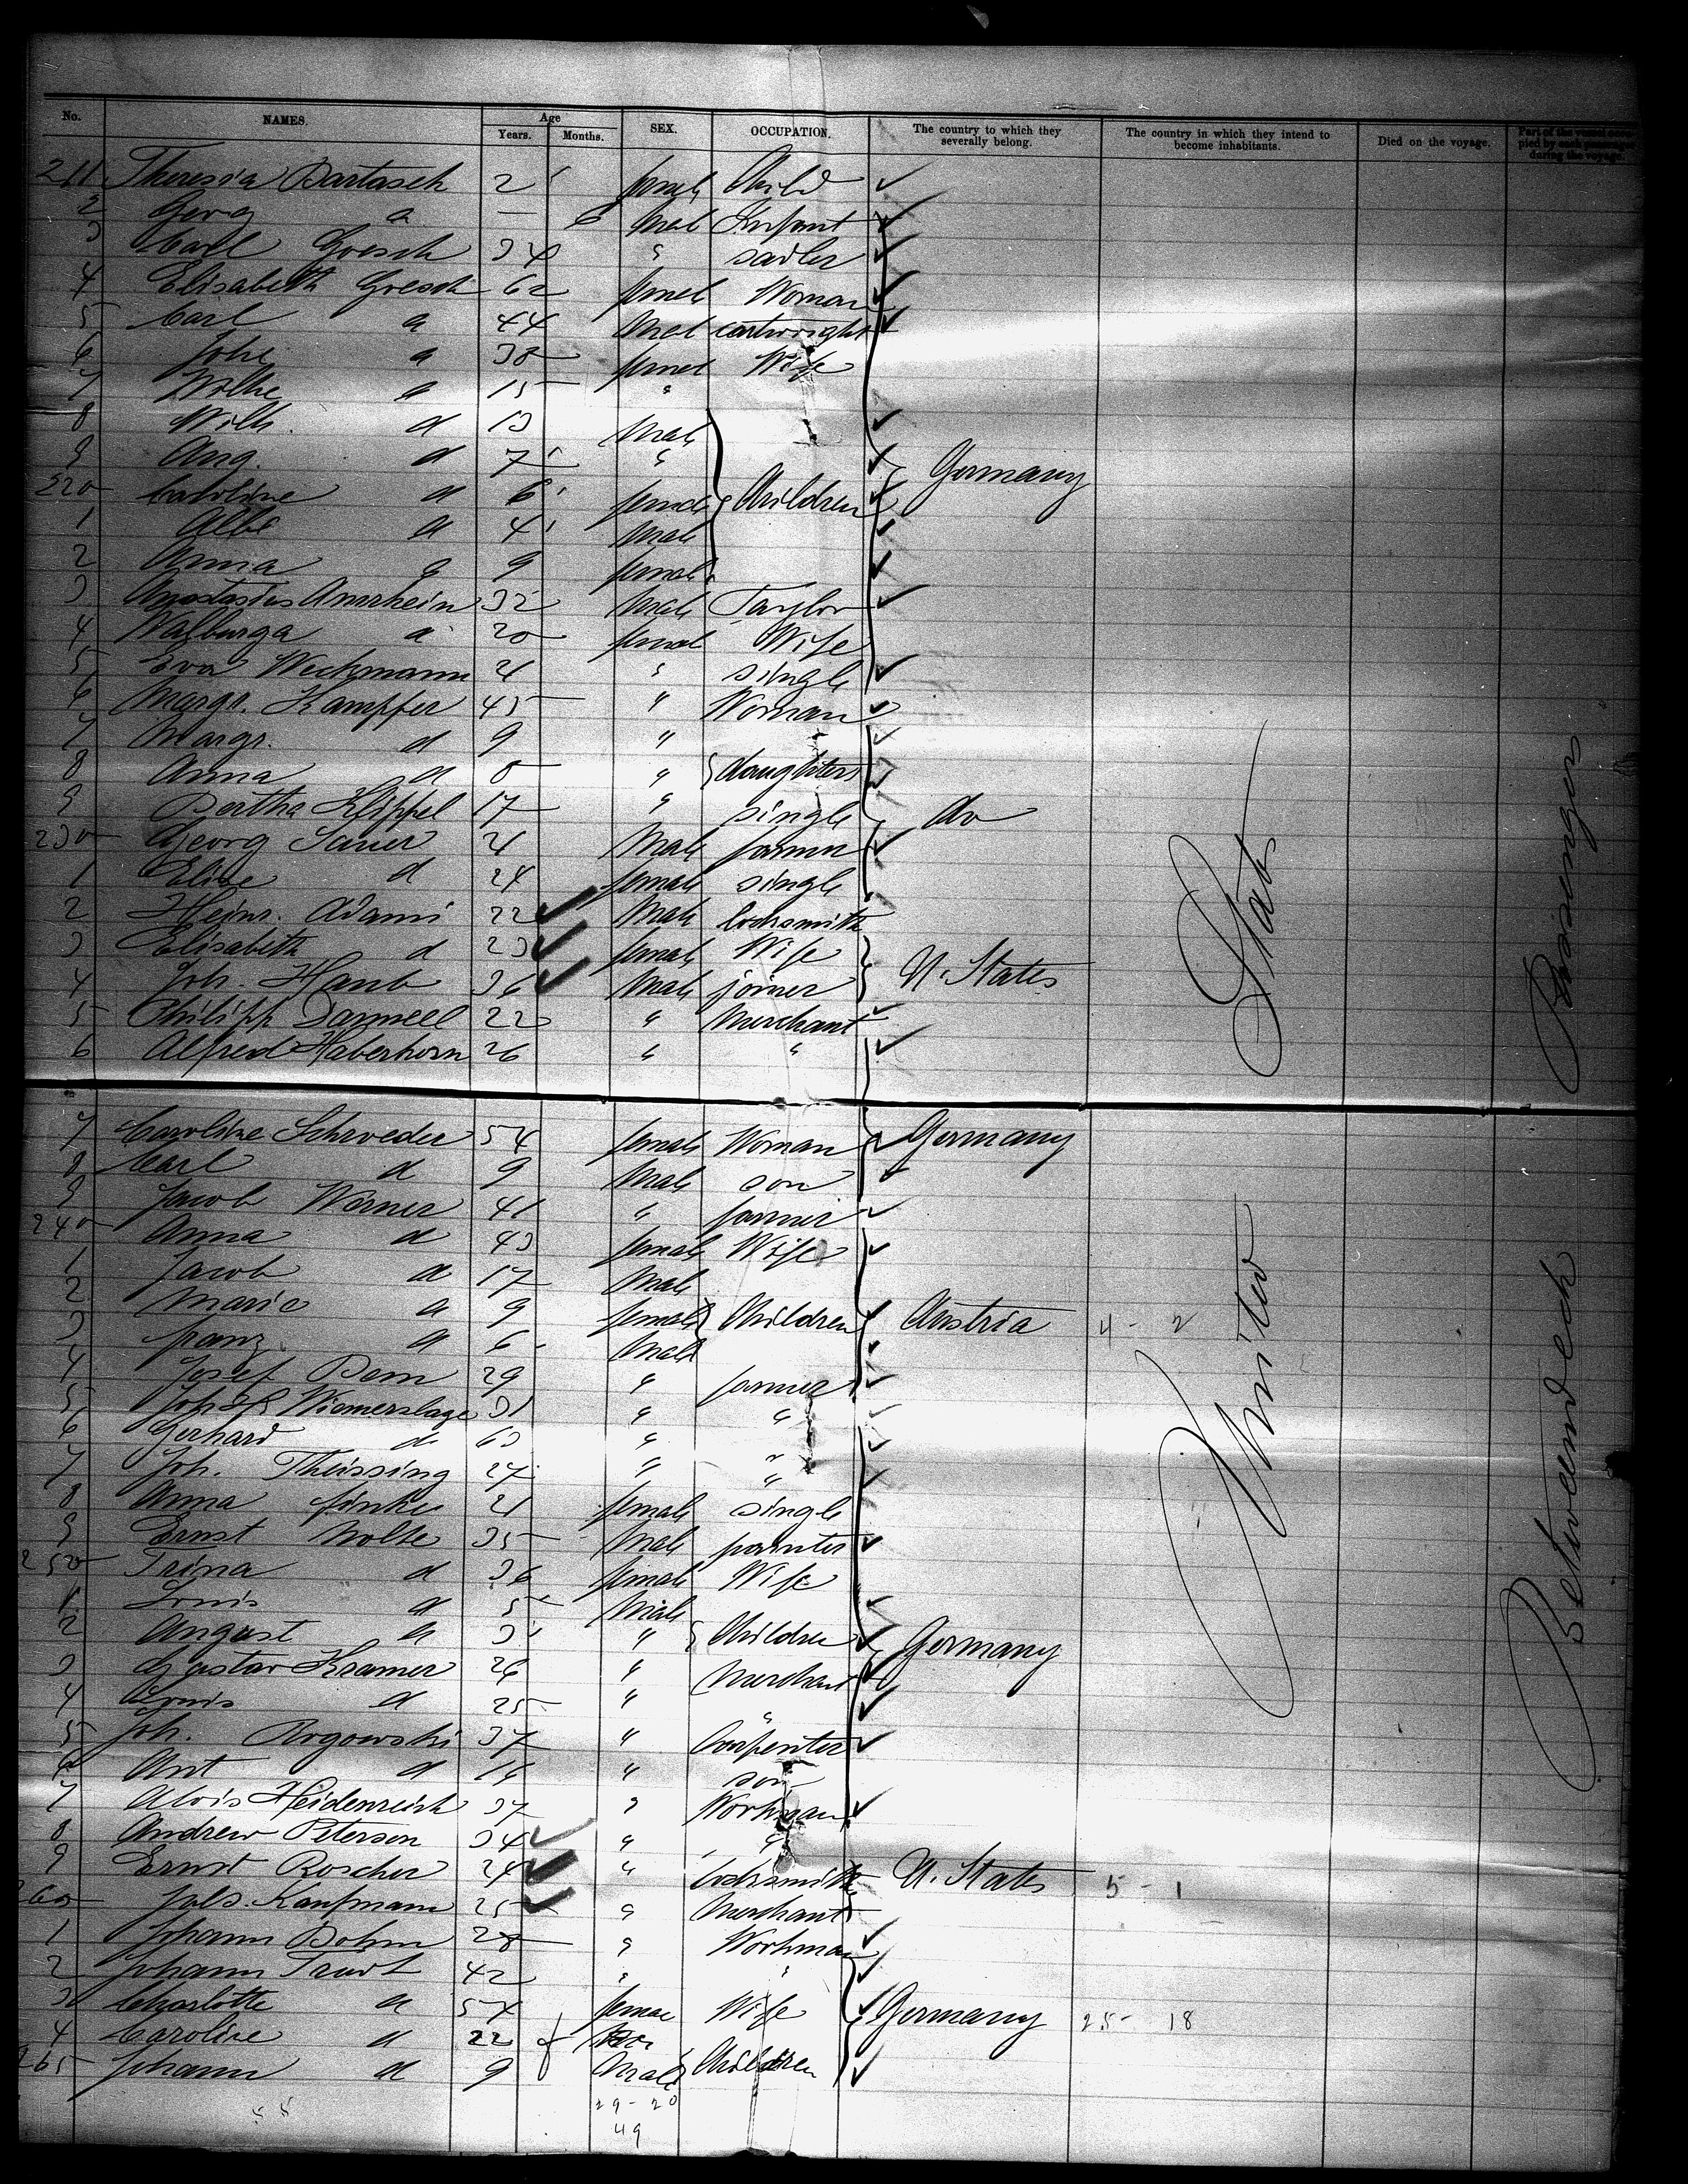 No. NAMES. Age Years. Months. SEX. OCCUPATION. The country to which they severally belong. The country in which they intend to become inhabitants. Died on the voyage. Part of the vessel occupied by each passenger during the voyage.
211 Theresia Bartasch 2 female Child
2 Georg d — 6 Mal Infant
3 Carl Goesch 34 " sadler
4 Elisabeth Goesch 62 femel Woman
5 Carl d 44 Mal cartwright
6 Johe d 38 femel Wife
7 Wilhe d 15 "
8 Wilh. d 13 Male
9 Aug. d 7 " Germany
220 Caroline d 6 female Children
1 Albe d 4 Male
2 Anna d 9 female
3 Anastasius Amrhein 32 Male Taylor
4 Walburga d 20 female Wife
5 Eva Weckmann 21 " single
6 Margr. Kampfer 45 " Woman
7 Margr. d 9 "
8 Anna d 8 " daughters
9 Bertha Klippel 17 " single do
230 Georg Sauer 21 Male farmer
1 Elise d 24 female single
2 Heinr. Adami 22 Male locksmith
3 Elisabeth d 23 female Wife
4 Joh. Haub 36 Male joiner U. States
5 Philipp Darmeel 22 " Merchant
6 Alfred Haberkorn 26 " "
7 Caroline Schroeder 54 female Woman Germany
8 Carl d 9 Male son
9 Jacob Werner 41 " farmer
240 Anna d 43 female Wife
1 Jacob d 17 Male
2 Marie d 9 female Children Austria 4 - 2
3 Franz d 6 Male
4 Josef Bem 29 " farmer
5 Wiemerslage 31 " "
6 Gerhard d 63 " "
7 Joh. Theissing 27 " "
8 Anna Finke 21 female single
9 Ernst Nolte 35 Male painter
250 Trina d 36 female Wife
1 Louis d 5 Male
2 August d 3 " Children Germany
3 Gustav Kramer 26 " Merchant
4 Louis d 25 " "
5 Joh. Rogowski 37 " Carpenter
6 Ant d 16 " son
7 Alois Heidenreich 37 " Workman
8 Andrew Peterson 34 " "
9 Ernst Roscher 24 " locksmith U. States 5 - 1
260 Juls. Kaufmann 25 " Merchant
1 Johann Bohm 28 " Workman
2 Johann Traut 42 " "
3 Charlotte d 54 female Wife Germany 25 - 18
4 Caroline d 22 f
265 Johann d 9 Male Children
29 - 20
49
United States
Betweendeck Passenger